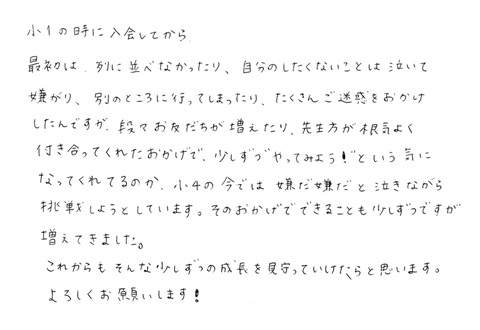 小1の時に入会してから、
最初は、列に並べなかったり、自分のしたくないことは泣いて
嫌がり、別のところに行ってしまったり、たくさんご迷惑をおかけ
したんですが、段々お友だちが増えたり、先生方が根気よく
付き合ってくれたおかげで、少しずつ"やってみよう!"という気に
なってくれてるのか、小4の今では嫌だ嫌だと泣きながら
挑戦しようとしています。そのおかげでできることも少しずつですが
増えてきました。
これからもそんな少しずつの成長を見守っていけたらと思います。
よろしくお願いします!